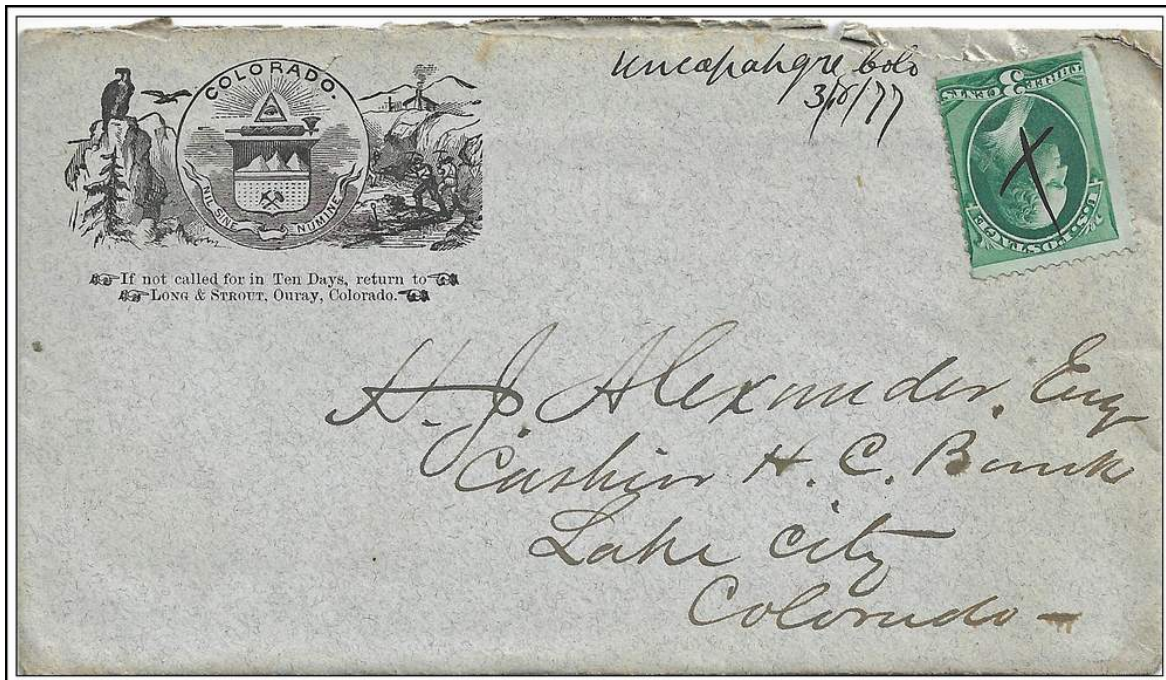 COLORADO.
NIL SINE NUMINE
If not called for in Ten Days, return to
LONG & STROUT, Ouray, Colorado.
Uncapahgre Colo
3/18/77
3
U.S. POSTAGE
H. J. Alexander, Esq
Cashier H. C. Bank
Lake City
Colorado –